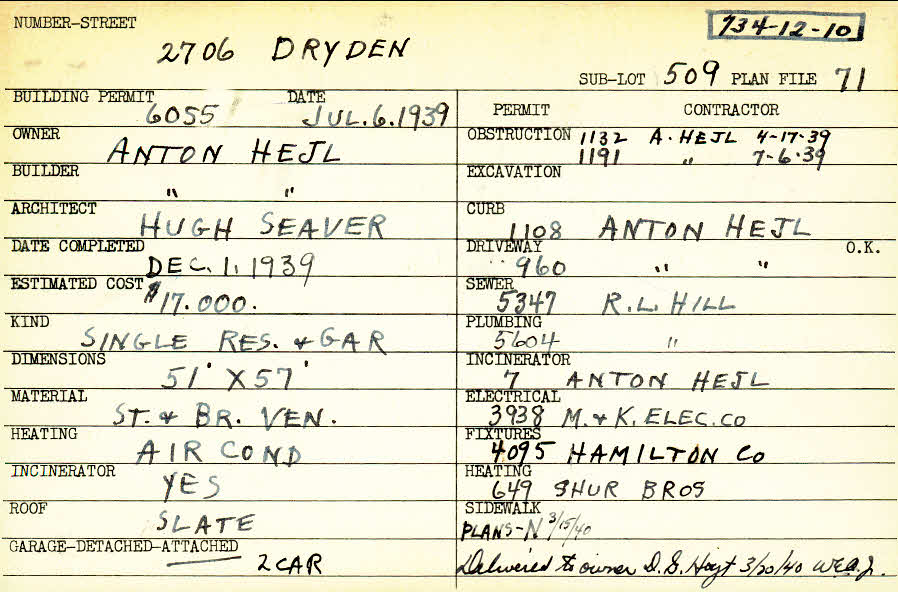 NUMBER-STREET
734-12-10
2706 DRYDEN
SUB-LOT 509 PLAN FILE 71
BUILDING PERMIT DATE
6055 JUL. 6. 1939
OWNER
ANTON HEJL
BUILDER
" "
ARCHITECT
HUGH SEAVER
DATE COMPLETED
DEC. 1. 1939
ESTIMATED COST
$17.000.
KIND
SINGLE RES. & GAR
DIMENSIONS
51' X 57'
MATERIAL
ST. & BR. VEN.
HEATING
AIR COND
INCINERATOR
YES
ROOF
SLATE
GARAGE-DETACHED-ATTACHED
2 CAR
PERMIT CONTRACTOR
OBSTRUCTION 1132 A. HEJL 4-17-39
1191 " 7-6-39
EXCAVATION
CURB
1108 ANTON HEJL
DRIVEWAY O.K.
960 " "
SEWER
5347 R.L. HILL
PLUMBING
5604 "
INCINERATOR
7 ANTON HEJL
ELECTRICAL
3938 M. & K. ELEC. CO
FIXTURES
4095 HAMILTON CO
HEATING
649 SHUR BROS
SIDEWALK
PLANS-N 3/15/40
Delivered to owner D. G. Hoyt 3/20/40